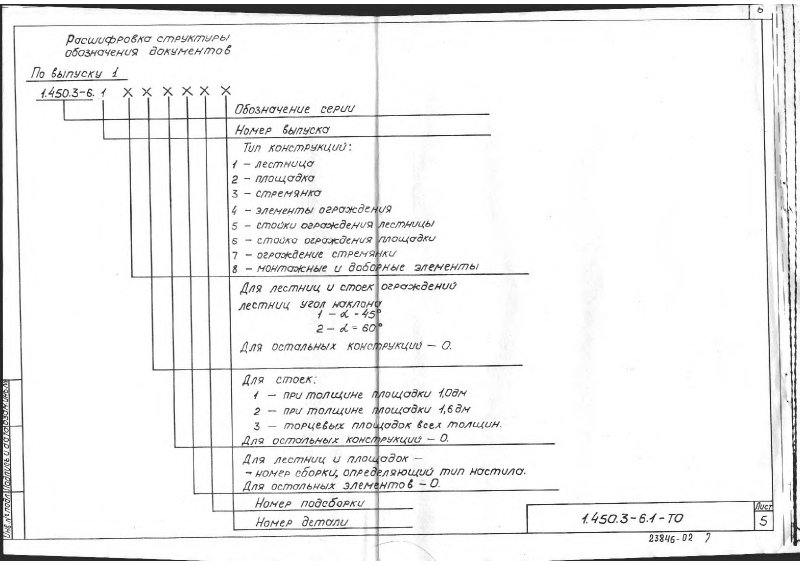 6
Расшифровка структуры
обозначения документов
По выпуску 1
1.450.3-6. 1 X X X X X X
Обозначение серии
Номер выпуска
Тип конструкций:
1 – лестница
2 – площадка
3 – стремянка
4 – элементы ограждения
5 – стойки ограждения лестницы
6 – стойка ограждения площадки
7 – ограждение стремянки
8 – монтажные и доборные элементы
Для лестниц и стоек ограждений
лестниц угол наклона
1 – α = 45°
2 – α = 60°
Для остальных конструкций – 0.
Для стоек:
1 – при толщине площадки 1,0дм
2 – при толщине площадки 1,6дм
3 – торцевых площадок всех толщин.
Для остальных конструкций – 0.
Для лестниц и площадок –
– номер сборки, определяющий тип настила.
Для остальных элементов – 0.
Номер подсборки
Номер детали
Инв.№ подл. Подпись и дата
1.450.3-6.1-ТО
Лист
5
23846-02 7